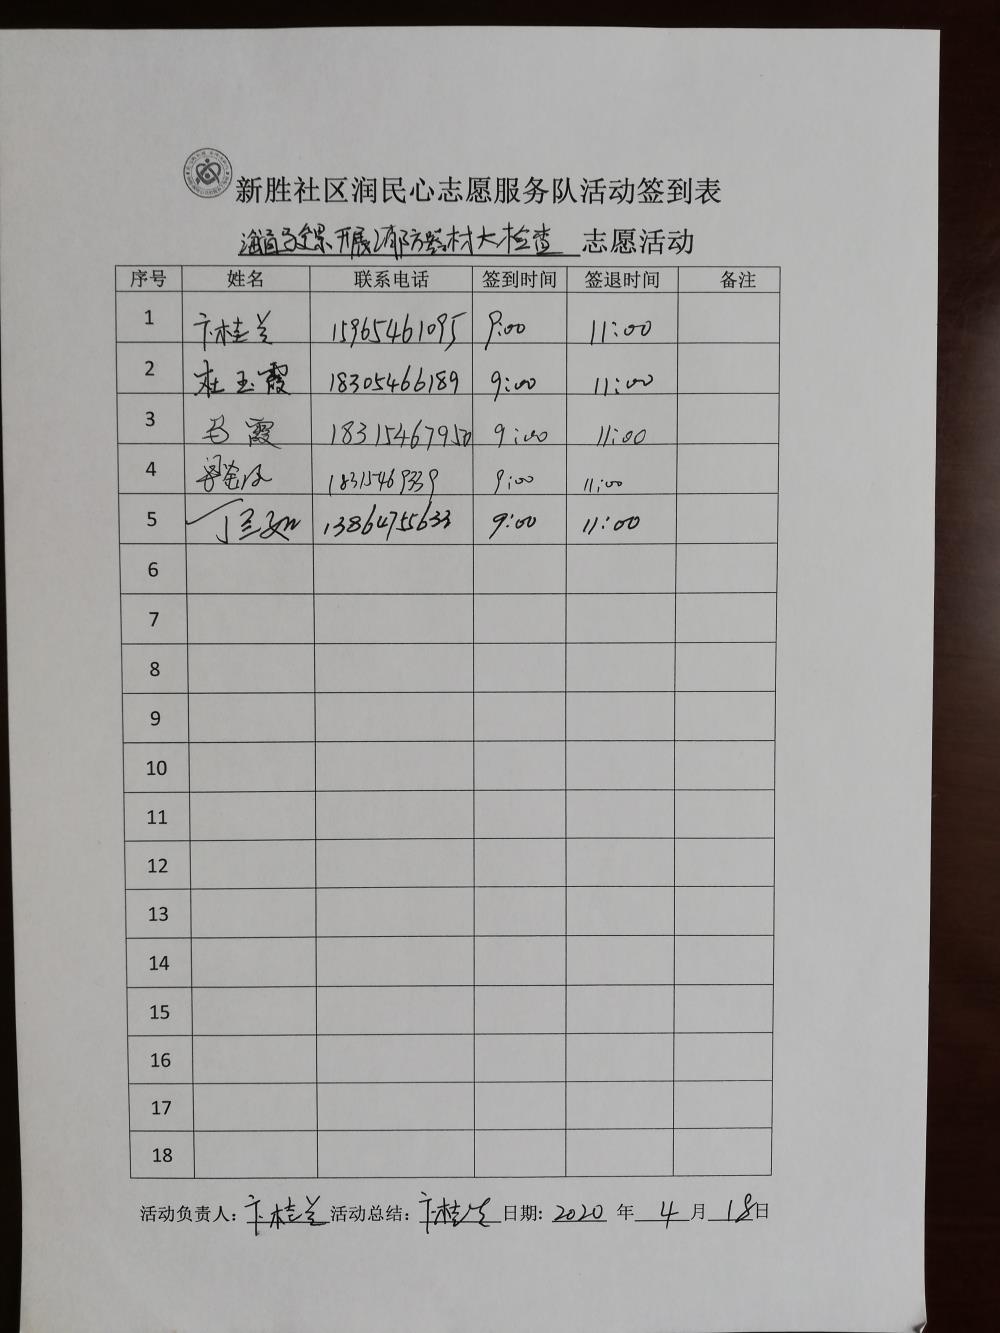 新胜社区润民心志愿服务队活动签到表
开展消防器材大检查 志愿活动
序号 姓名 联系电话 签到时间 签退时间 备注
1 卞桂兰 15965461095 9:00 11:00
2 杜玉霞 18305466189 9:00 11:00
3 马霞 18315467950 9:00 11:00
4 18315469339 9:00 11:00
5 丁兰如 13864755633 9:00 11:00
6
7
8
9
10
11
12
13
14
15
16
17
18
活动负责人: 卞桂兰 活动总结: 卞桂兰 日期: 2020 年 4 月 18 日